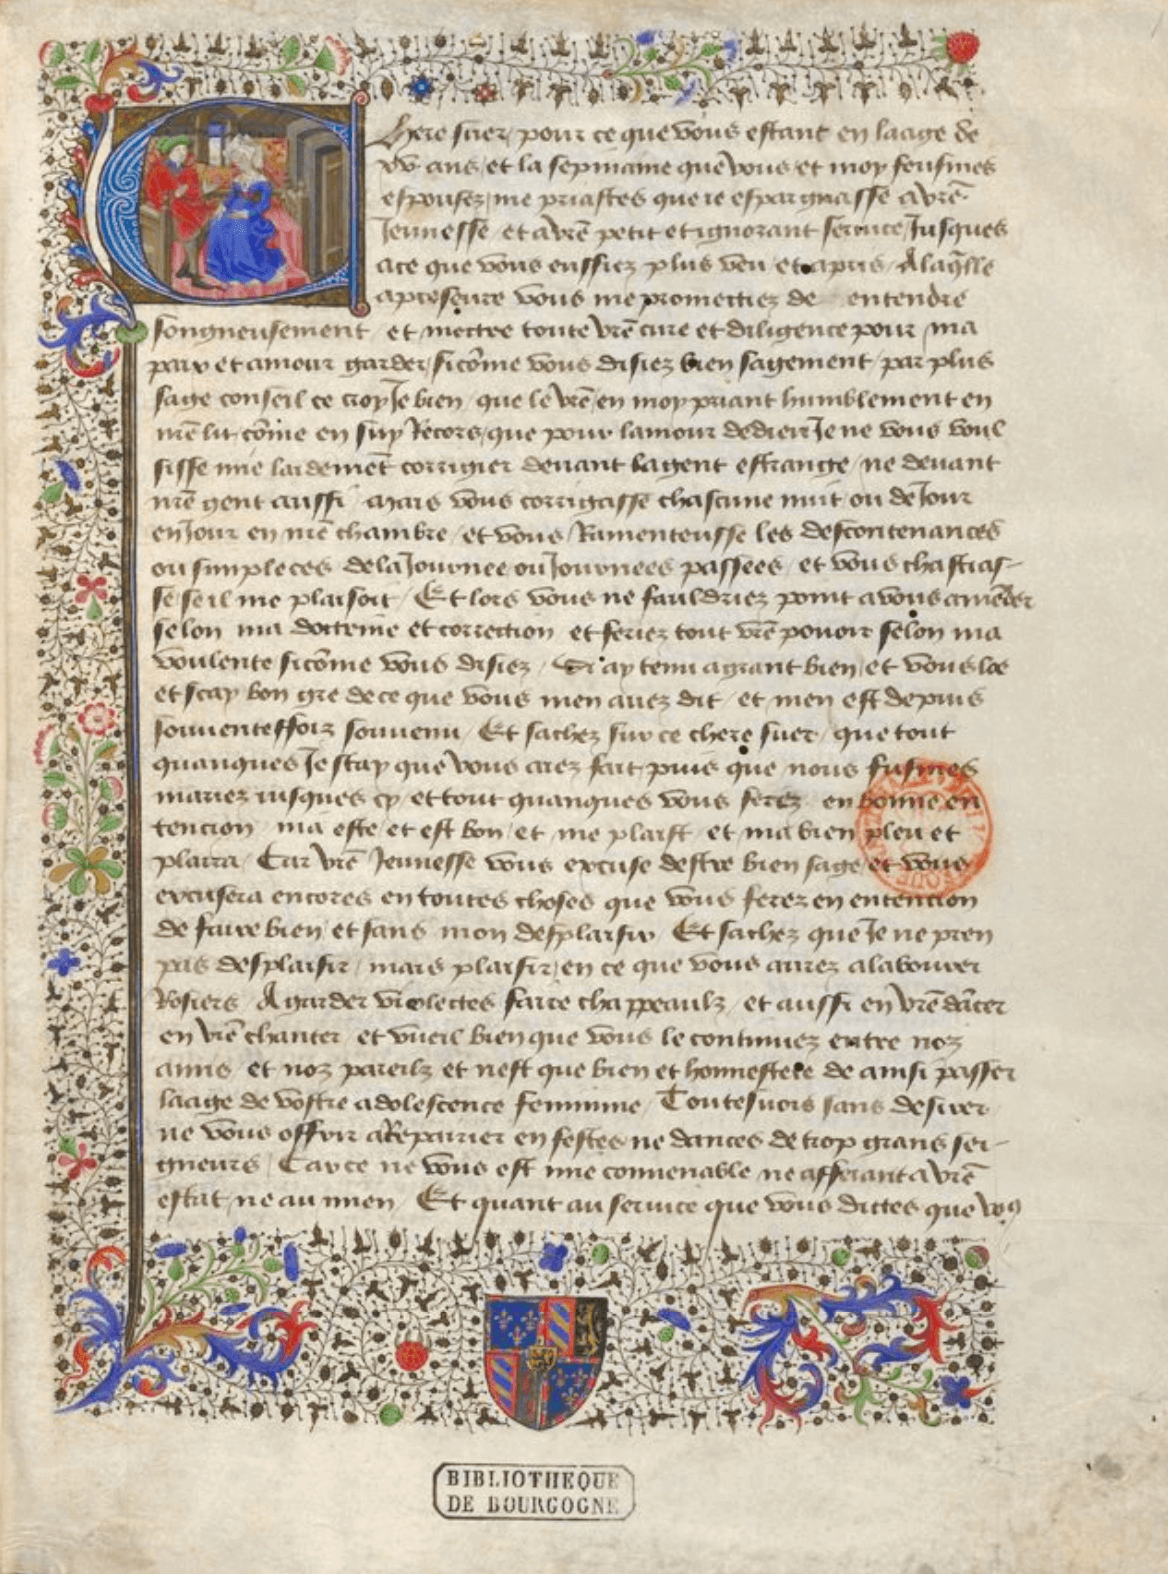 Chere suer pour ce que vous estant en laage de
xv ans et la sepmaine que vous et moy feusmes
espousez me priastes que ie espargnasse a vr̄e
Jeunesse et a vr̄e petit et ignorant seruice Jusques
a ce que vous eussiez plus veu et apris A laq̄lle
apresure vous me promectiez de entendre
songneusement et mectre toute vr̄e cure et diligence pour ma
paix et amour garder sicōme vous disiez bien sagement par plus
sage conseil ce croy Je bien que le vr̄e en moy priant humblement en
nr̄e lit cōme en suy Recors que pour lamour de dieu Je ne vous voul
sisse mie laidemēt corrigier deuant la gent estrange ne deuant
nr̄e gent aussi mais vous corrigasse chascune nuit ou de Jour
en Jour en nr̄e chambre et vous Ramenteusse les descontenances
ou simpleces de la Journee ou Journees passees et vous chastias-
se se il me plaisoit Et lors vous ne fauldriez point a vous amēder
selon ma doctrine et correction et feriez tout vr̄e pouoir selon ma
voulente sicōme vous disiez Si ay tenu a grant bien et vous loe
et scay bon gre de ce que vous men auez dit et men est depuis
souuenteffoiz souuenu Et sachez sur ce chere suer que tout
quanques Je scay que vous aiez fait puis que nous fusmes
mariez iusques cy et tout quanques vous ferez en bonne en
tencion ma este et est bon et me plaist et ma bien pleu et
plaira Car vr̄e Jeunesse vous excuse destre bien sage et vous
excusera encores en toutes choses que vous ferez en entencion
de faire bien et sans mon desplaisir Et sachez que Je ne pren
pas desplaisir mais plaisir en ce que vous aurez a labourer
Rosiers A garder violectes faire chappeaulx et aussi en vr̄e dācer
en vr̄e chanter et vueil bien que vous le continuez entre noz
amis et noz pareilz et nest que bien et honnestete de ainsi passer
laage de vostre adolescence feminine Toutesuois sans desirer
ne vous offrir a Repairier en festes ne dances de trop grans sei-
gneurs Car ce ne vous est mie conuenable ne afferant a vr̄e
estat ne au mien Et quant au seruice que vous dictes que vo9
BIBLIOTHEQUE
DE BOURGOGNE